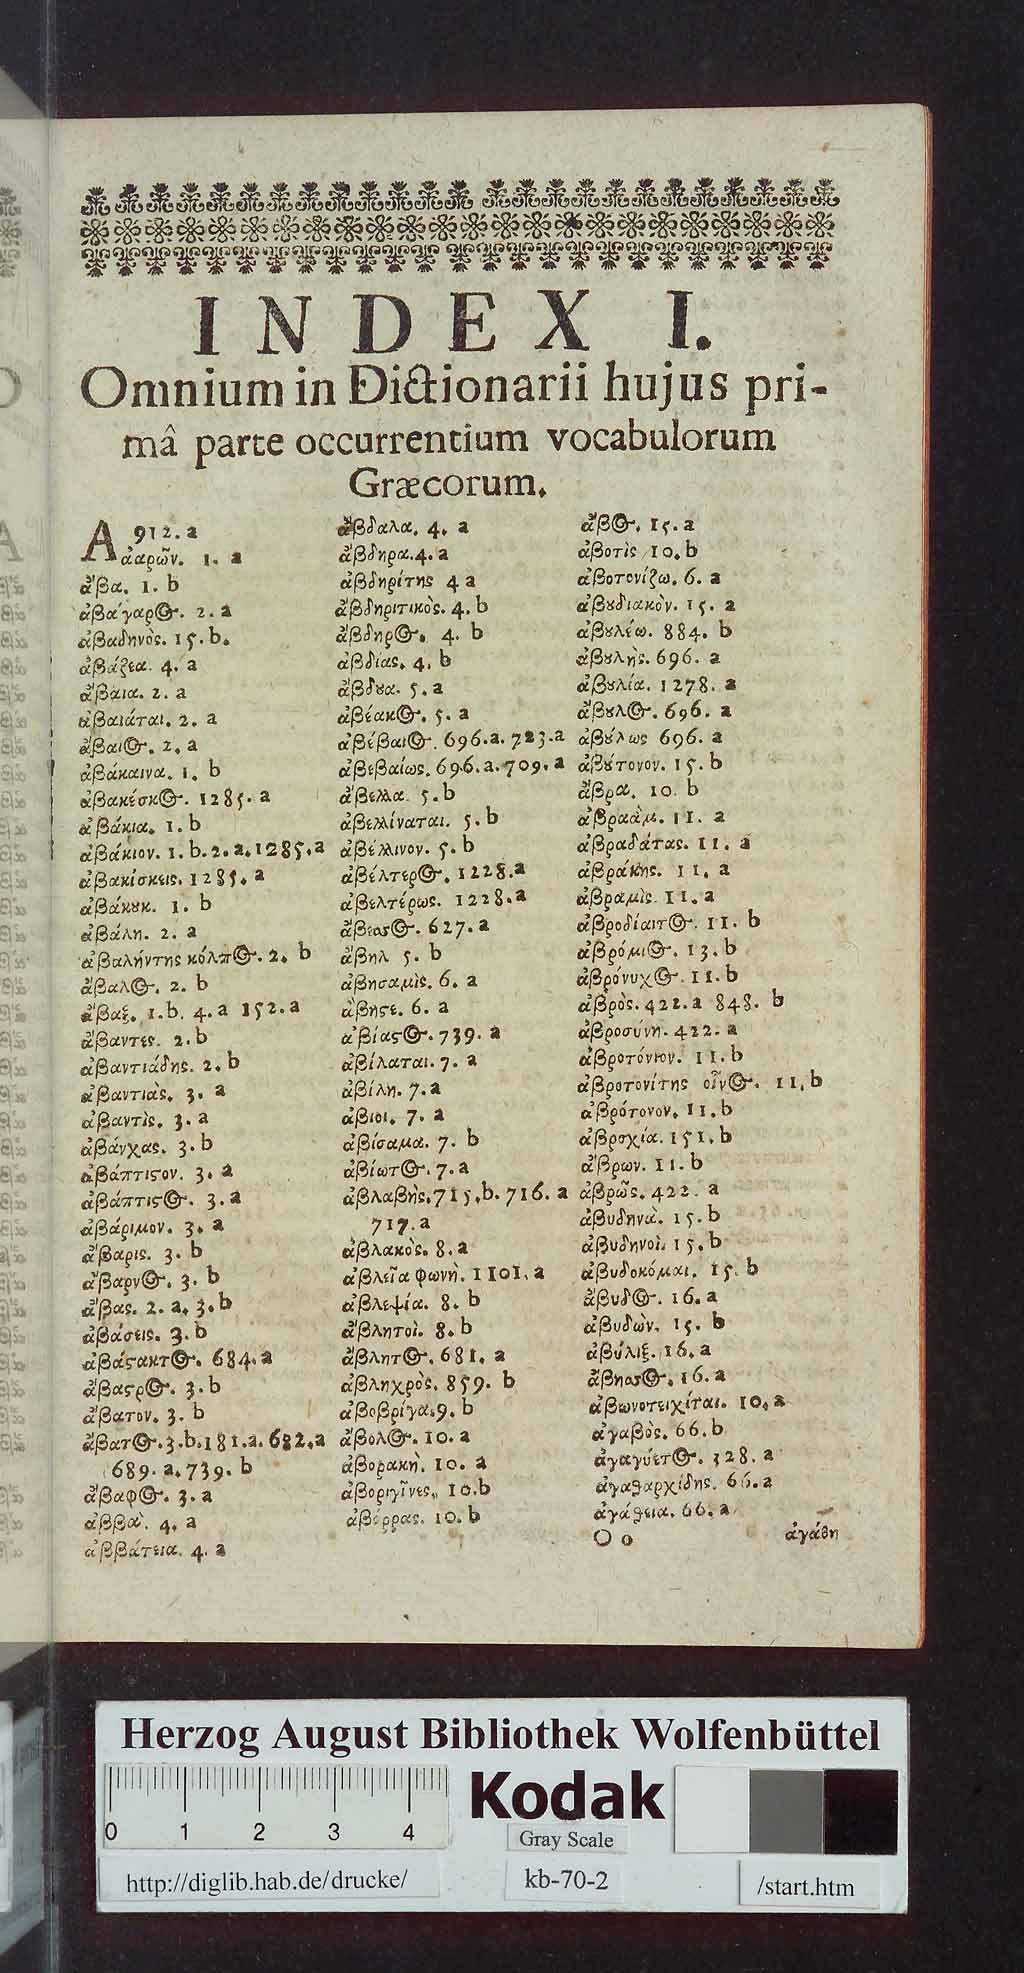 INDEX I.
Omnium in Dictionarii hujus pri-
mâ parte occurrentium vocabulorum
Græcorum.
A 912. a
ἀαρῶν. 1. a
ἄβα. 1. b
ἀβάγαρος. 2. a
ἀβαδηνὸς. 15. b.
ἀβάζεα. 4. a
ἄβαια. 2. a
ἀβαιάται. 2. a
ἄβαιος. 2. a
ἀβάκαινα. 1. b
ἀβακέσκος. 1285. a
ἀβάκια. 1. b
ἀβάκιον. 1. b. 2. a. 1285. a
ἀβακίσκεις. 1285. a
ἀβάκȣκ. 1. b
ἀβάλη. 2. a
ἀβαλήντης κόλπος. 2. b
ἄβαλος. 2. b
ἄβαξ. 1. b. 4. a 152. a
ἄβαντες. 2. b
ἀβαντιάδης. 2. b
ἀβαντιὰς. 3. a
ἀβαντὶς. 3. a
ἀβάνχας. 3. b
ἀβάπτιϛον. 3. a
ἀβάπτιϛος. 3. a
ἀβάριμον. 3. a
ἄβαρις. 3. b
ἄβαρνος. 3. b
ἄβας. 2. a. 3. b
ἀβάσεις. 3. b
ἀβάϛακτος. 684. a
ἄβαϛρος. 3. b
ἄβατον. 3. b
ἄβατος. 3. b. 181. a. 682. a
689. a. 739. b
ἄβαφος. 3. a
ἀββᾶ. 4. a
ἀββάτεια. 4. a
ἄβδαλα. 4. a
ἄβδηρα. 4. a
ἀβδηρίτης 4 a
ἀβδηριτικὸς. 4. b
ἄβδηρος. 4. b
ἀβδίας. 4. b
ἄβδȣα. 5. a
ἀβέακος. 5. a
ἀβέβαιος. 696. a. 723. a
ἀβεβαίως. 696. a. 709. a
ἄβελλα. 5. b
ἀβελλίναται. 5. b
ἀβέλλινον. 5. b
ἀβέλτερος. 1228. a
ἀβελτέρως. 1228. a
627. a
ἄβηλ 5. b
ἀβησαμὶς. 6. a
ἄβησε. 6. a
ἀβίαϛος. 739. a
ἀβίλαται. 7. a
ἀβίλη. 7. a
ἄβιοι. 7. a
ἀβίσαμα. 7. b
ἀβίωτος. 7. a
ἀβλαβὴς. 715. b. 716. a
717. a
ἀβλακὸς. 8. a
ἀβλεῖα φωνὴ. 1101. a
ἀβλεψία. 8. b
ἄβλητοι. 8. b
ἄβλητος. 681. a
ἀβληχρὸς. 859. b
ἀβοβρίγα. 9. b
ἄβολος. 10. a
ἀβορακὴ. 10. a
ἀβοριγῖνες. 10. b
ἀβόρρας. 10. b
ἄβος. 15. a
ἀβοτὶς 10. b
ἀβοτονίζω. 6. a
ἀβȣδιακὸν. 15. a
ἀβȣλέω. 884. b
ἀβȣλὴς. 696. a
ἀβȣλία. 1278. a
ἄβȣλος. 696. a
ἀβȣ́λως 696. a
ἀβȣ́τονον. 15. b
ἄβρα. 10. b
ἀβραὰμ. 11. a
ἀβραδάτας. 11. a
ἀβράκης. 11. a
ἀβραμὶς. 11. a
ἀβροδίαιτος. 11. b
ἀβρόμιος. 13. b
ἀβρόνυχος. 11. b
ἀβρὸς. 422. a 848. b
ἀβροσύνη. 422. a
ἀβροτόνιον. 11. b
ἀβροτονίτης οἶνος. 11. b
ἀβρότονον. 11. b
ἀβροχία. 151. b
ἄβρων. 11. b
ἀβρῶς. 422. a
ἀβυδηνὰ. 15. b
ἀβυδηνοὶ. 15. b
ἀβυδοκόμαι. 15. b
ἄβυδος. 16. a
ἀβυδὼν. 15. b
ἀβύλιξ. 16. a
16. a
ἀβωνοτειχίται. 10. a
ἀγαβὸς. 66. b
ἀγαγύετος. 328. a
ἀγαθαρχίδης. 66. a
ἀγάθεια. 66. a
O o ἀγάθη
Herzog August Bibliothek Wolfenbüttel
0 1 2 3 4
Kodak
Gray Scale
http://diglib.hab.de/drucke/ kb-70-2 /start.htm